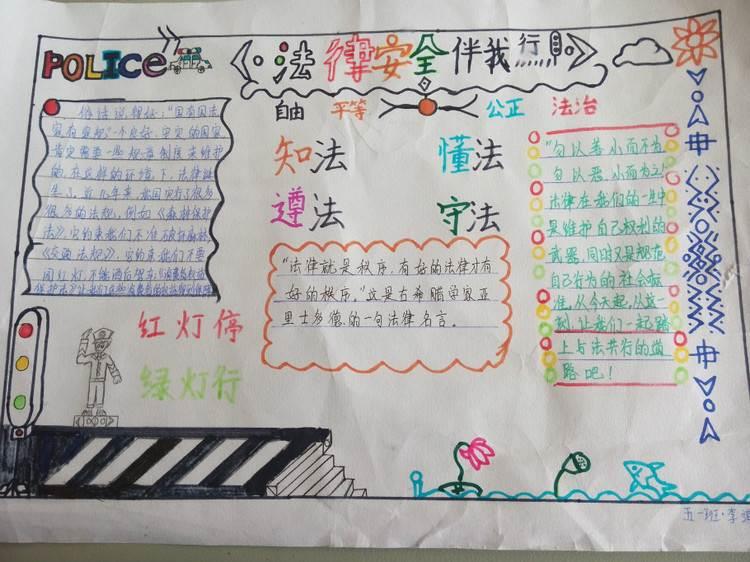 POLICE
法律安全伴我行
自由 平等 公正 法治
俗话说得好："国有国法
家有家规"一个良好,安定的国家
肯定需要一些规章制度来维护
的,在这样的环境下,法律诞
生了,前几年来我国实行了很多
很多的法规,例如《森林保护
法》,它约束我们不准破坏森林
《交通法规》,它约束我们不要
闯红灯不能酒后驾车
知法 懂法
遵法 守法
"法律就是秩序,有好的法律才有
好的秩序。"这是古希腊学家亚
里士多德的一句法律名言。
"勿以善小而不为
勿以恶小而为之"
法律在我们的一生中
是维护自己权利的
武器,同时又是规范
自己行为的社会标
准,从今天起,从这一
刻,让我们一起踏
上与法共行的道
路吧!
红灯停
绿灯行
五一班·李